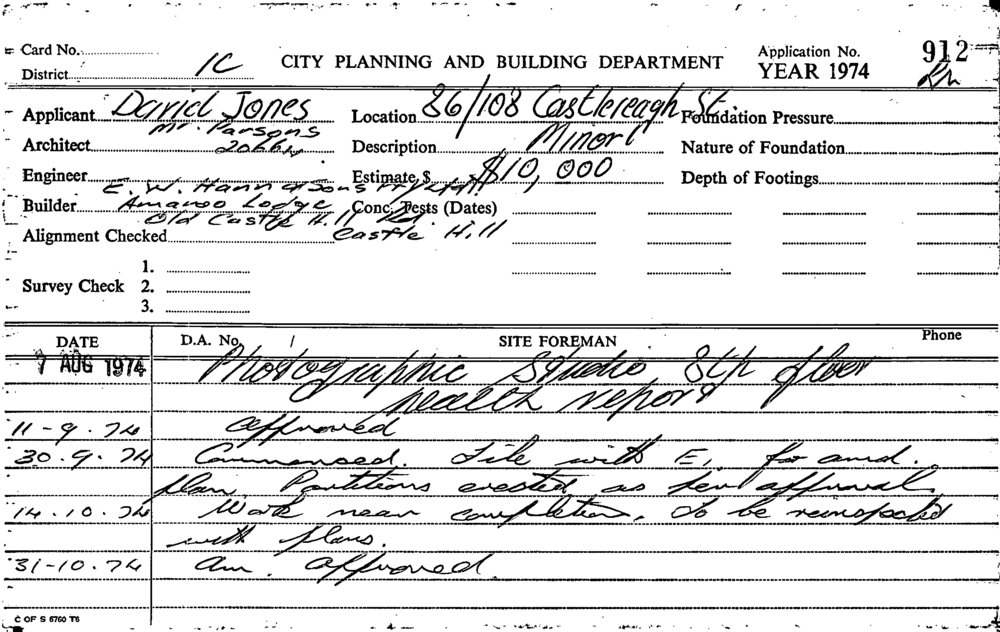 Card No.
District 1C
CITY PLANNING AND BUILDING DEPARTMENT
Application No. 912
YEAR 1974
Applicant David Jones
Mr. Parsons
Location 86/108 Castlereagh St.
Foundation Pressure
Architect 20664
Description Minor
Nature of Foundation
Engineer
Estimate $ $10,000
Depth of Footings
E. W. Hann & Sons Pty Ltd
Builder Amaroo Lodge
Conc. Tests (Dates)
Old Castle Hill Rd.
Alignment Checked Castle Hill
1.
Survey Check 2.
3.
DATE D.A. No. SITE FOREMAN Phone
7 AUG 1974 Photographic Studio 8th floor
health report
11-9.74 approved
30.9.74 Commenced. File with E, for amd.
plan. Partitions erected as per approval.
14.10.74 Work near completion, to be reinspected
with plans.
31-10.74 Am. approved.
C OF S 6760 T6